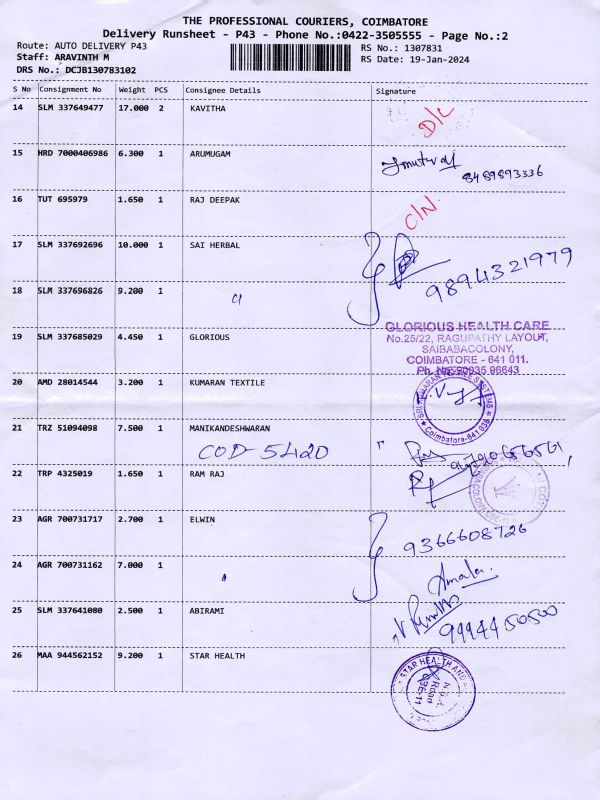 THE PROFESSIONAL COURIERS, COIMBATORE
Delivery Runsheet - P43 - Phone No.:0422-3505555 - Page No.:2
Route: AUTO DELIVERY P43
RS No.: 1307831
Staff: ARAVINTH M
RS Date: 19-Jan-2024
DRS No.: DCJB130783102
S No Consignment No Weight PCS Consignee Details Signature
14 SLM 337649477 17.000 2 KAVITHA
D/C
15 HRD 7000406986 6.300 1 ARUMUGAM
8489893336
16 TUT 695979 1.650 1 RAJ DEEPAK
C/N.
17 SLM 337692696 10.000 1 SAI HERBAL
9894321979
18 SLM 337696826 9.200 1
19 SLM 337685029 4.450 1 GLORIOUS
GLORIOUS HEALTH CARE
No.25/22, RAGUPATHY LAYOUT,
SAIBABACOLONY,
COIMBATORE - 641 011.
Ph. No:90035 96643
20 AMD 28014544 3.200 1 KUMARAN TEXTILE
Coimbatore-641 038
21 TRZ 51094098 7.500 1 MANIKANDESHWARAN
COD-5420
22 TRP 4325019 1.650 1 RAM RAJ
23 AGR 700731717 2.700 1 ELWIN
9366608726
24 AGR 700731162 7.000 1
Amala
25 SLM 337641080 2.500 1 ABIRAMI
9944450500
26 MAA 944562152 9.200 1 STAR HEALTH
STAR HEALTH AND